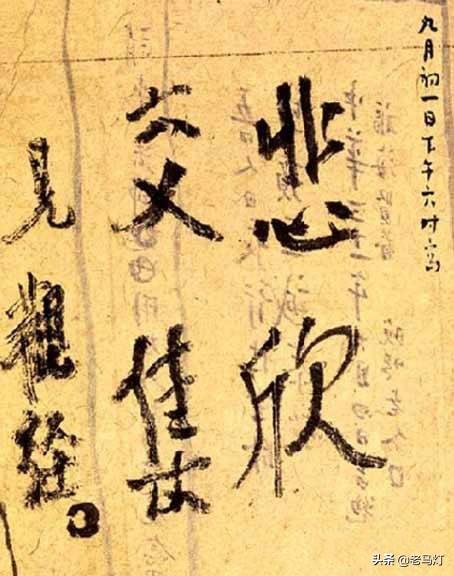 九月初一日下午六时写
悲欣
交集
見觀經。
头条 @老马灯